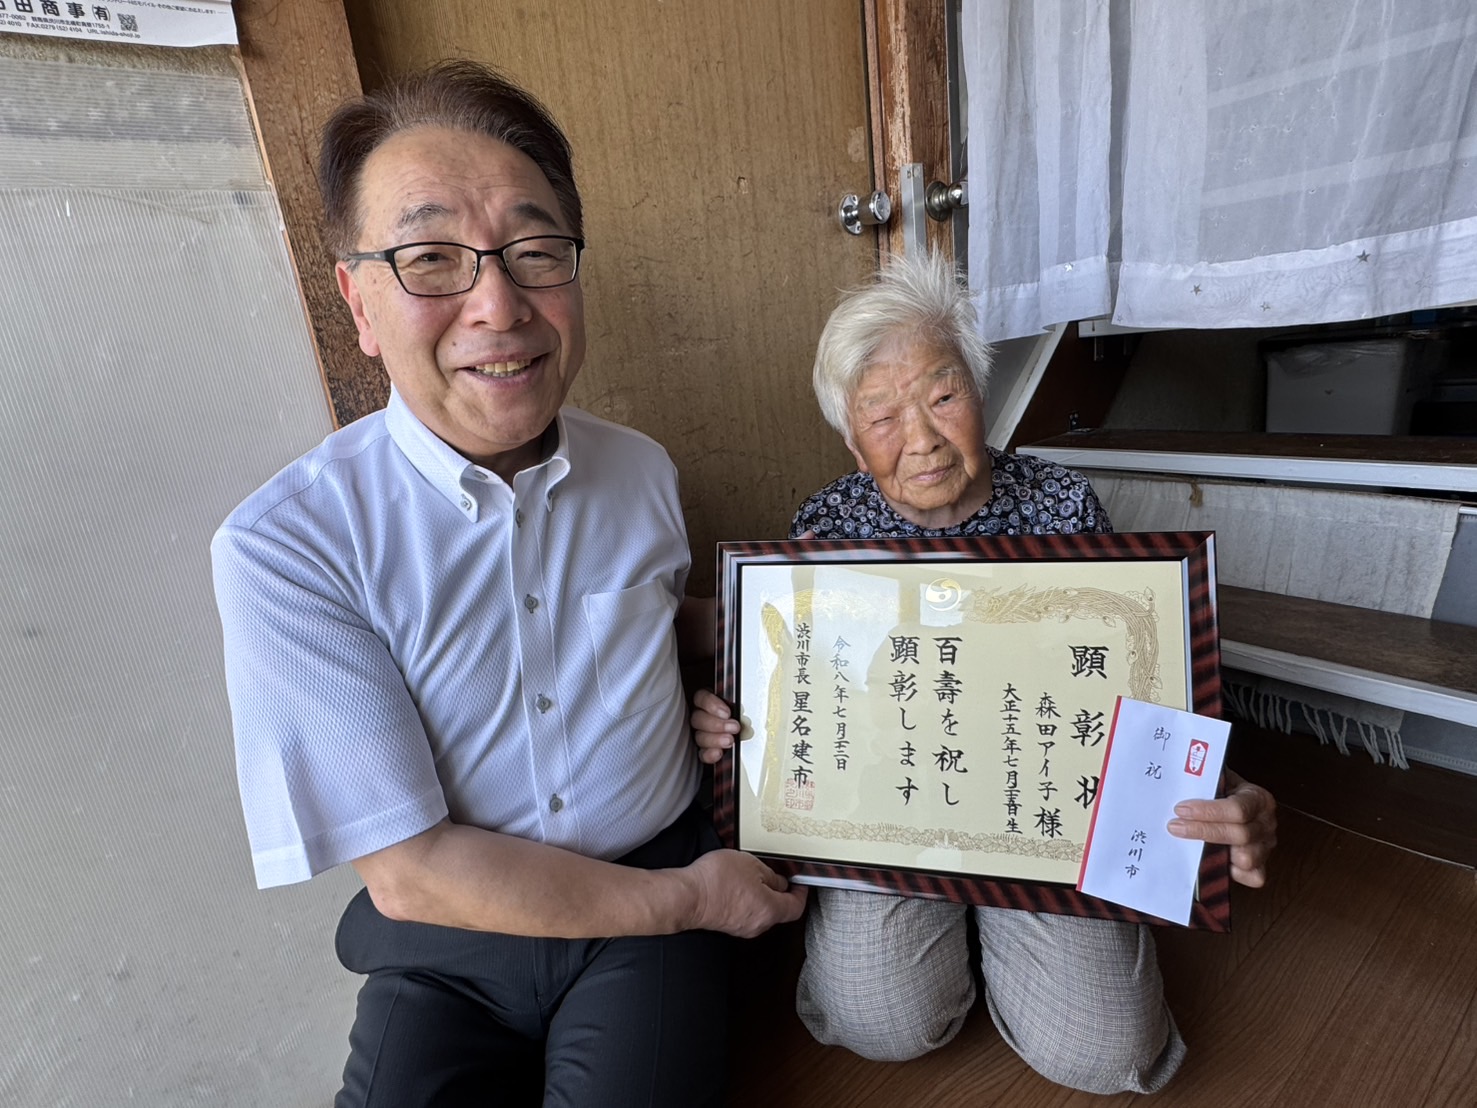 石田商事㈲
顕彰状
森田アイ子様
大正十五年七月二十三日生
百壽を祝し
顕彰します
令和八年七月二十二日
渋川市長 星名建市
御祝
渋川市